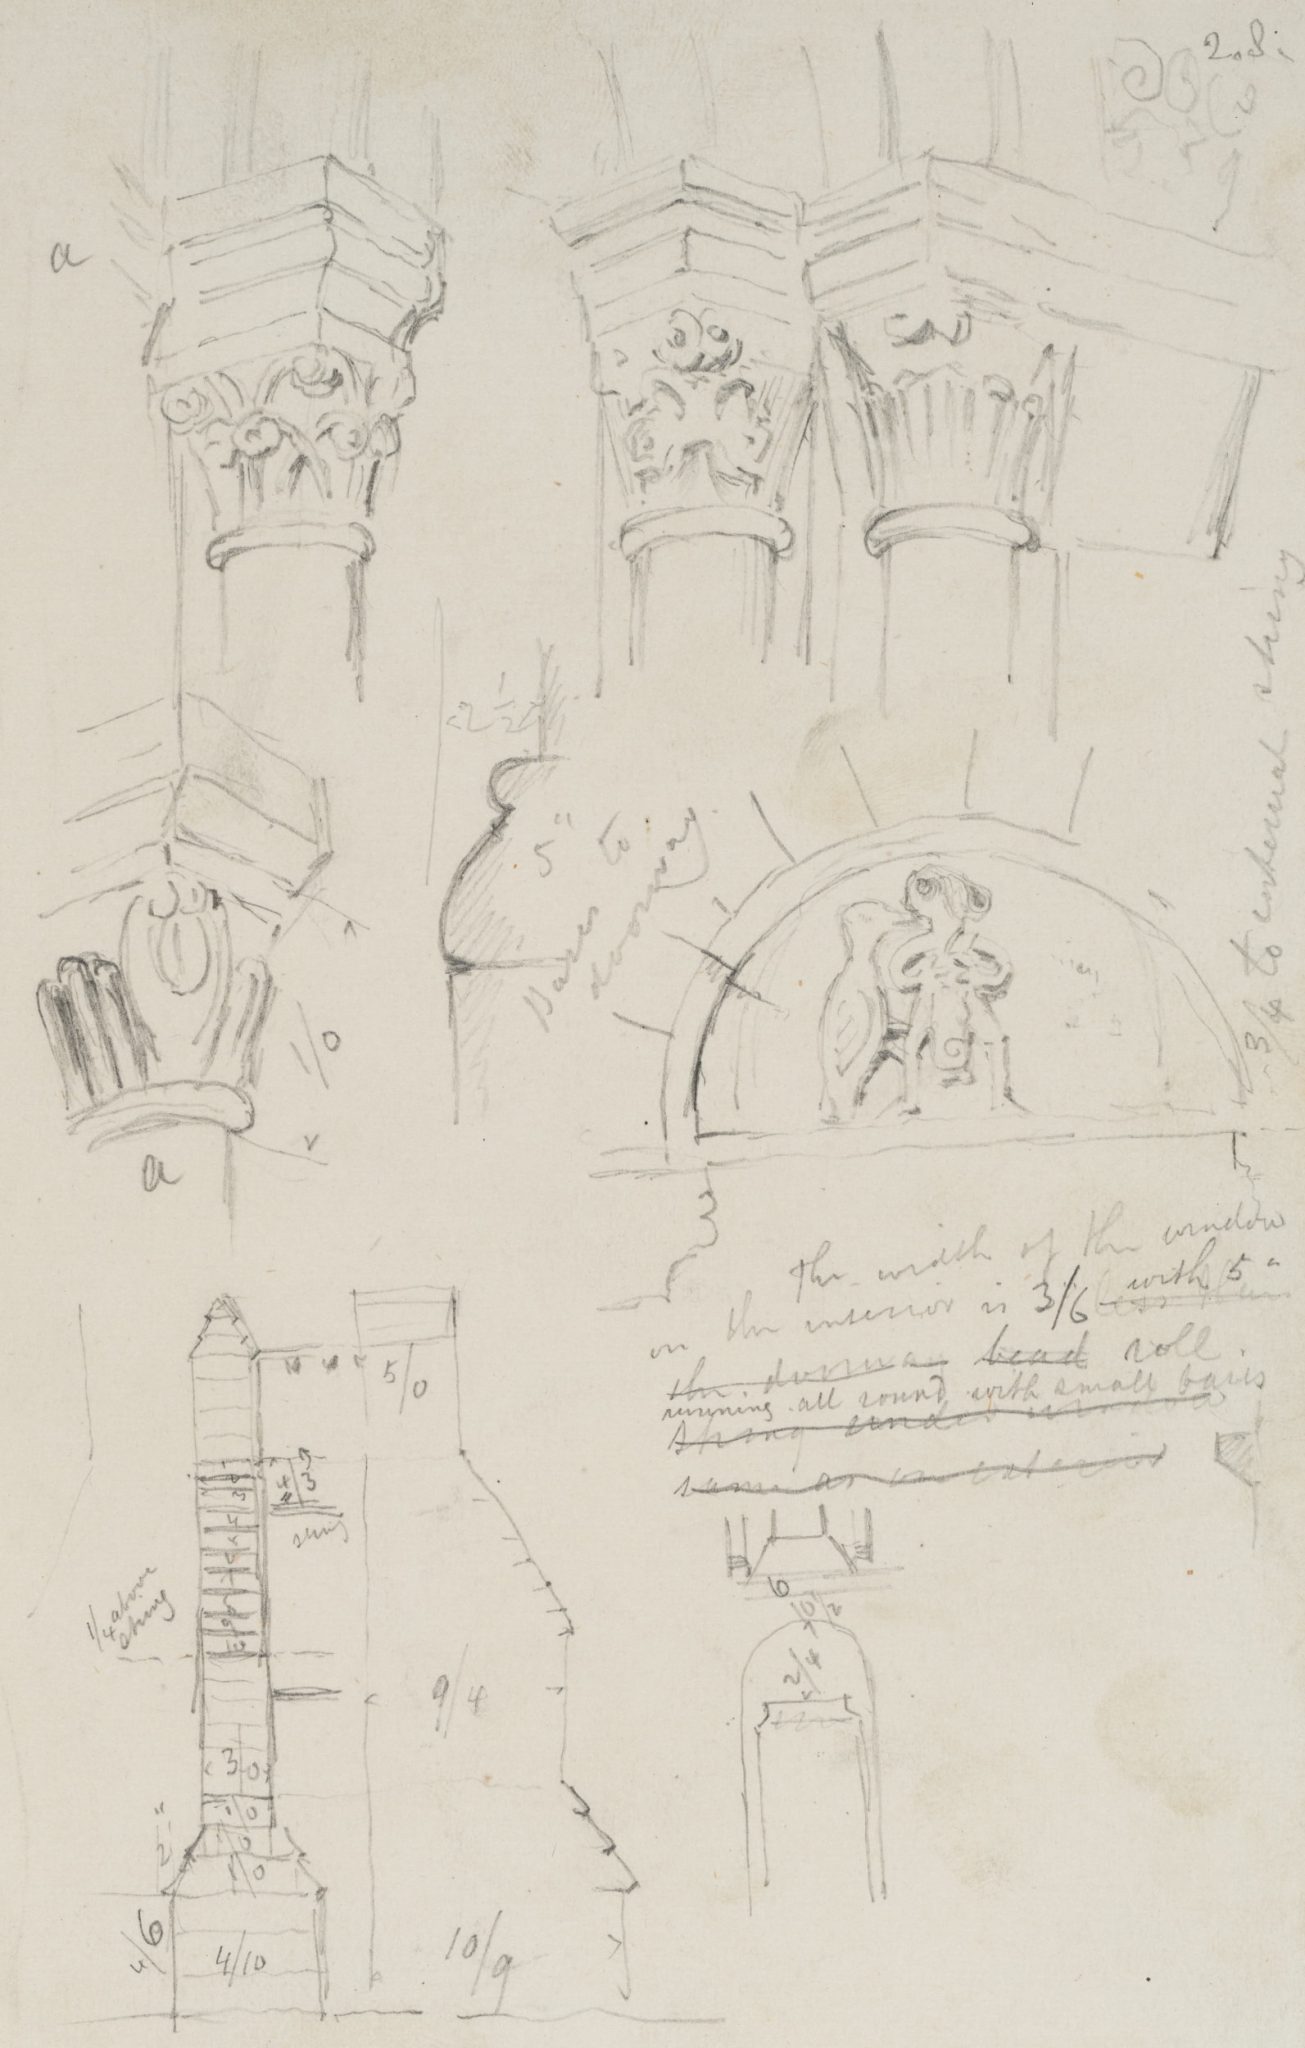 2.8.
a
2 1/2
5"
Bases to
doorway.
3/4 to external string
1/0
a
The width of the window
on the interior is 3/6 less than with 5"
the doorway bead roll.
running all round with small bases
string under window
same as on exterior
5/0
4/3
string
1/4 above
string
9/4
6
10/2
2/4
3/0
1/0
1/0
1/0
2"
4/6
4/10
10/9